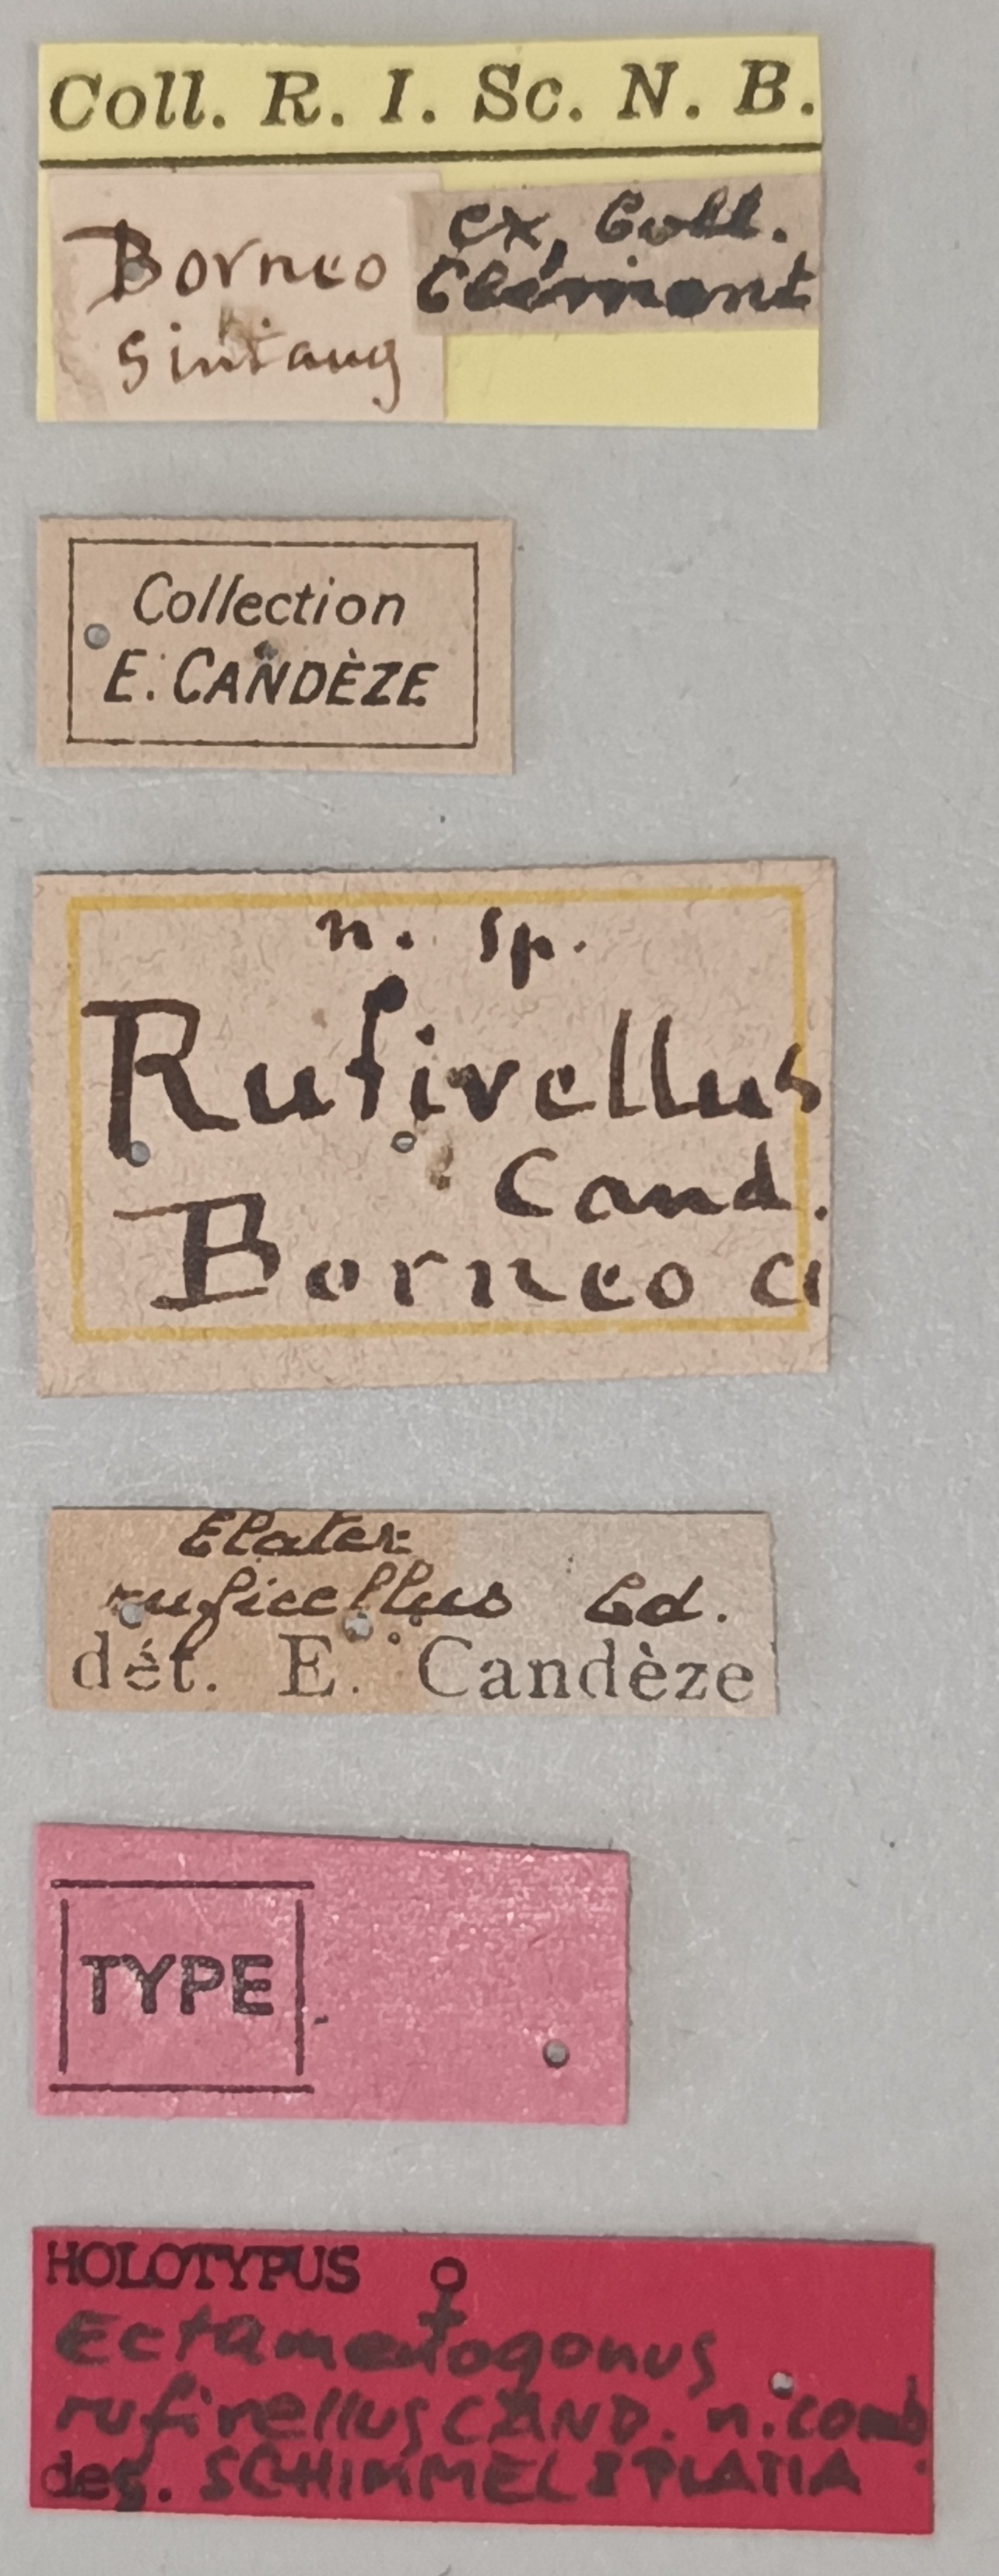 Coll. R. I. Sc. N. B.
Borneo
Sintang
ex, Coll.
Clermont
Collection
E. CANDÈZE
n. sp.
Rufivellus
Cand.
Borneo
Elater
ruficellus Cd.
dét. E. Candèze
TYPE
HOLOTYPUS ♀
Ectamenogonus
rufivellus CAND. n. comb.
des. SCHIMMEL & PLATIA